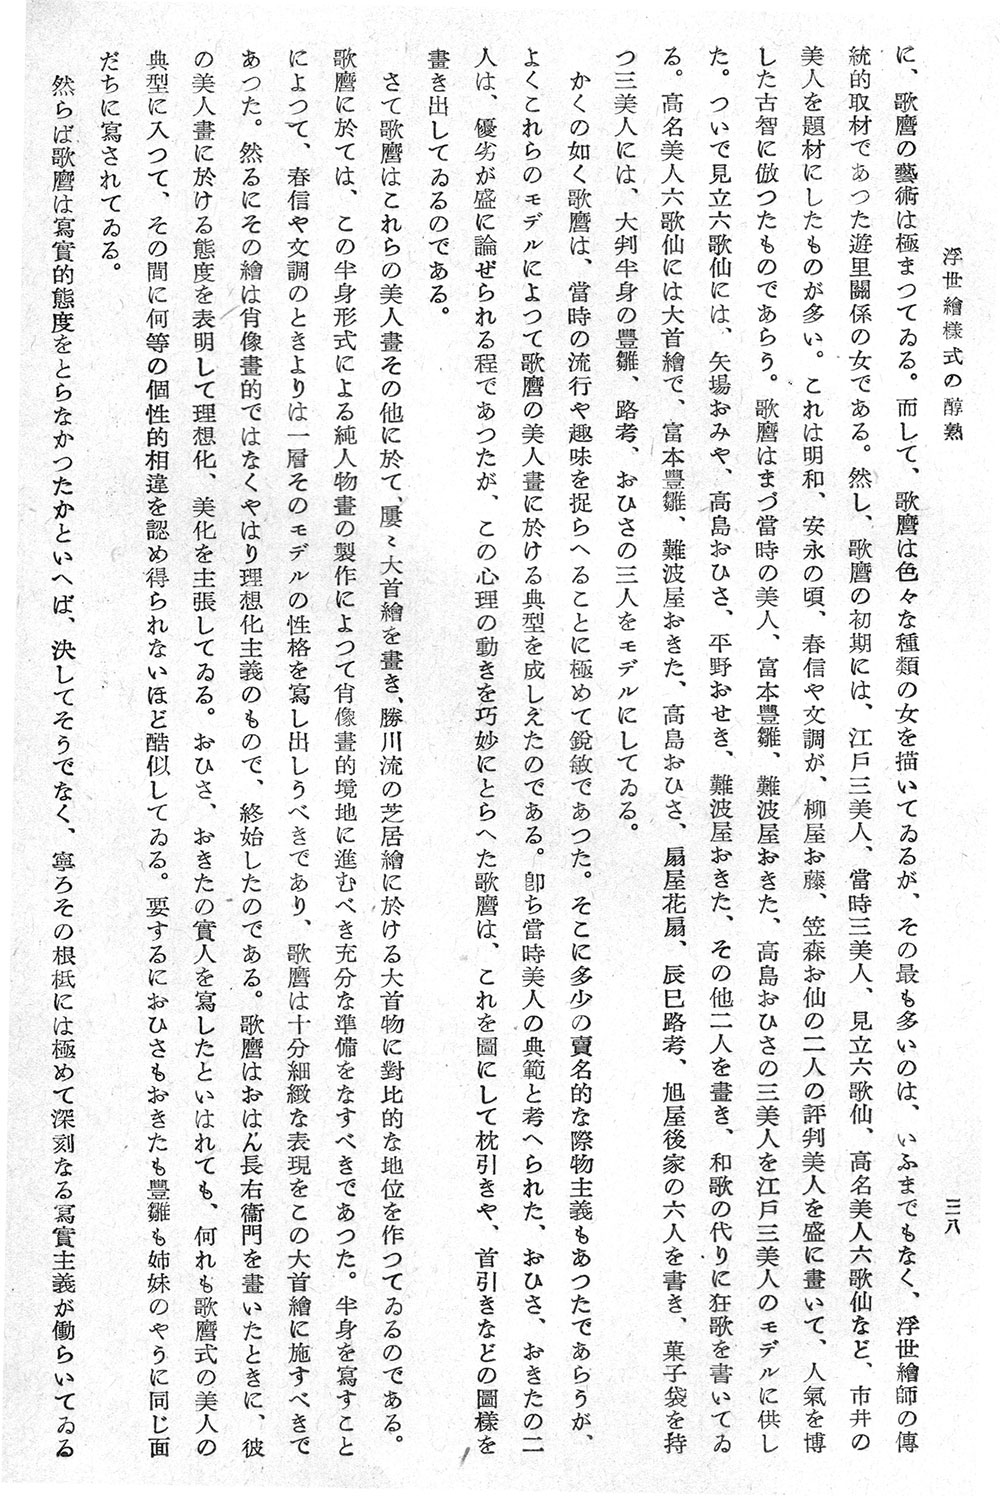 浮世繪樣式の醇熟
三八
に、歌麿の藝術は極まつてゐる。而して、歌麿は色々な種類の女を描いてゐるが、その最も多いのは、いふまでもなく、浮世繪師の傳
統的取材であつた遊里關係の女である。然し、歌麿の初期には、江戸三美人、當時三美人、見立六歌仙、高名美人六歌仙など、市井の
美人を題材にしたものが多い。これは明和、安永の頃、春信や文調が、柳屋お藤、笠森お仙の二人の評判美人を盛に畫いて、人氣を博
した古智に倣つたものであらう。歌麿はまづ當時の美人、富本豐雛、難波屋おきた、高島おひさの三美人を江戸三美人のモデルに供し
た。ついで見立六歌仙には、矢場おみや、高島おひさ、平野おせき、難波屋おきた、その他二人を畫き、和歌の代りに狂歌を書いてゐ
る。高名美人六歌仙には大首繪で、富本豐雛、難波屋おきた、高島おひさ、扇屋花扇、辰巳路考、旭屋後家の六人を書き、菓子袋を持
つ三美人には、大判半身の豐雛、路考、おひさの三人をモデルにしてゐる。
かくの如く歌麿は、當時の流行や趣味を捉らへることに極めて鋭敏であつた。そこに多少の賣名的な際物主義もあつたであらうが、
よくこれらのモデルによつて歌麿の美人畫に於ける典型を成しえたのである。卽ち當時美人の典範と考へられた、おひさ、おきたの二
人は、優劣が盛に論ぜられる程であつたが、この心理の動きを巧妙にとらへた歌麿は、これを圖にして枕引きや、首引きなどの圖樣を
畫き出してゐるのである。
さて歌麿はこれらの美人畫その他に於て、屢〻大首繪を畫き、勝川流の芝居繪に於ける大首物に對比的な地位を作つてゐるのである。
歌麿に於ては、この半身形式による純人物畫の製作によつて肖像畫的境地に進むべき充分な準備をなすべきであつた。半身を寫すこと
によつて、春信や文調のときよりは一層そのモデルの性格を寫し出しうべきであり、歌麿は十分細緻な表現をこの大首繪に施すべきで
あつた。然るにその繪は肖像畫的ではなくやはり理想化主義のもので、終始したのである。歌麿はおはん長右衞門を畫いたときに、彼
の美人畫に於ける態度を表明して理想化、美化を主張してゐる。おひさ、おきたの實人を寫したといはれても、何れも歌麿式の美人の
典型に入つて、その間に何等の個性的相違を認め得られないほど酷似してゐる。要するにおひさもおきたも豐雛も姉妹のやうに同じ面
だちに寫されてゐる。
然らば歌麿は寫實的態度をとらなかつたかといへば、決してそうでなく、寧ろその根柢には極めて深刻なる寫實主義が働らいてゐる